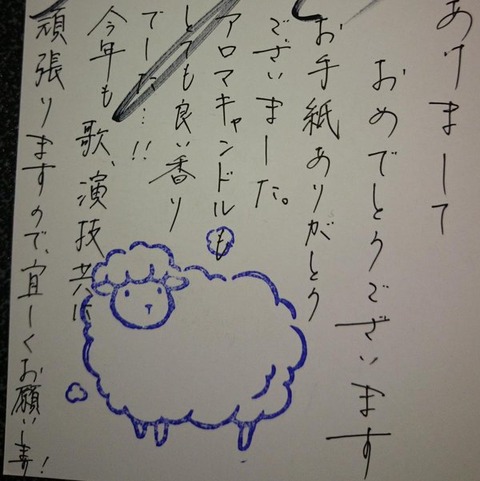 あけまして
おめでとうございます
お手紙ありがとう
ございました。
アロマキャンドルも
とても良い香り
でした…!!
今年も歌、演技共に
頑張りますので、宜しくお願いします!